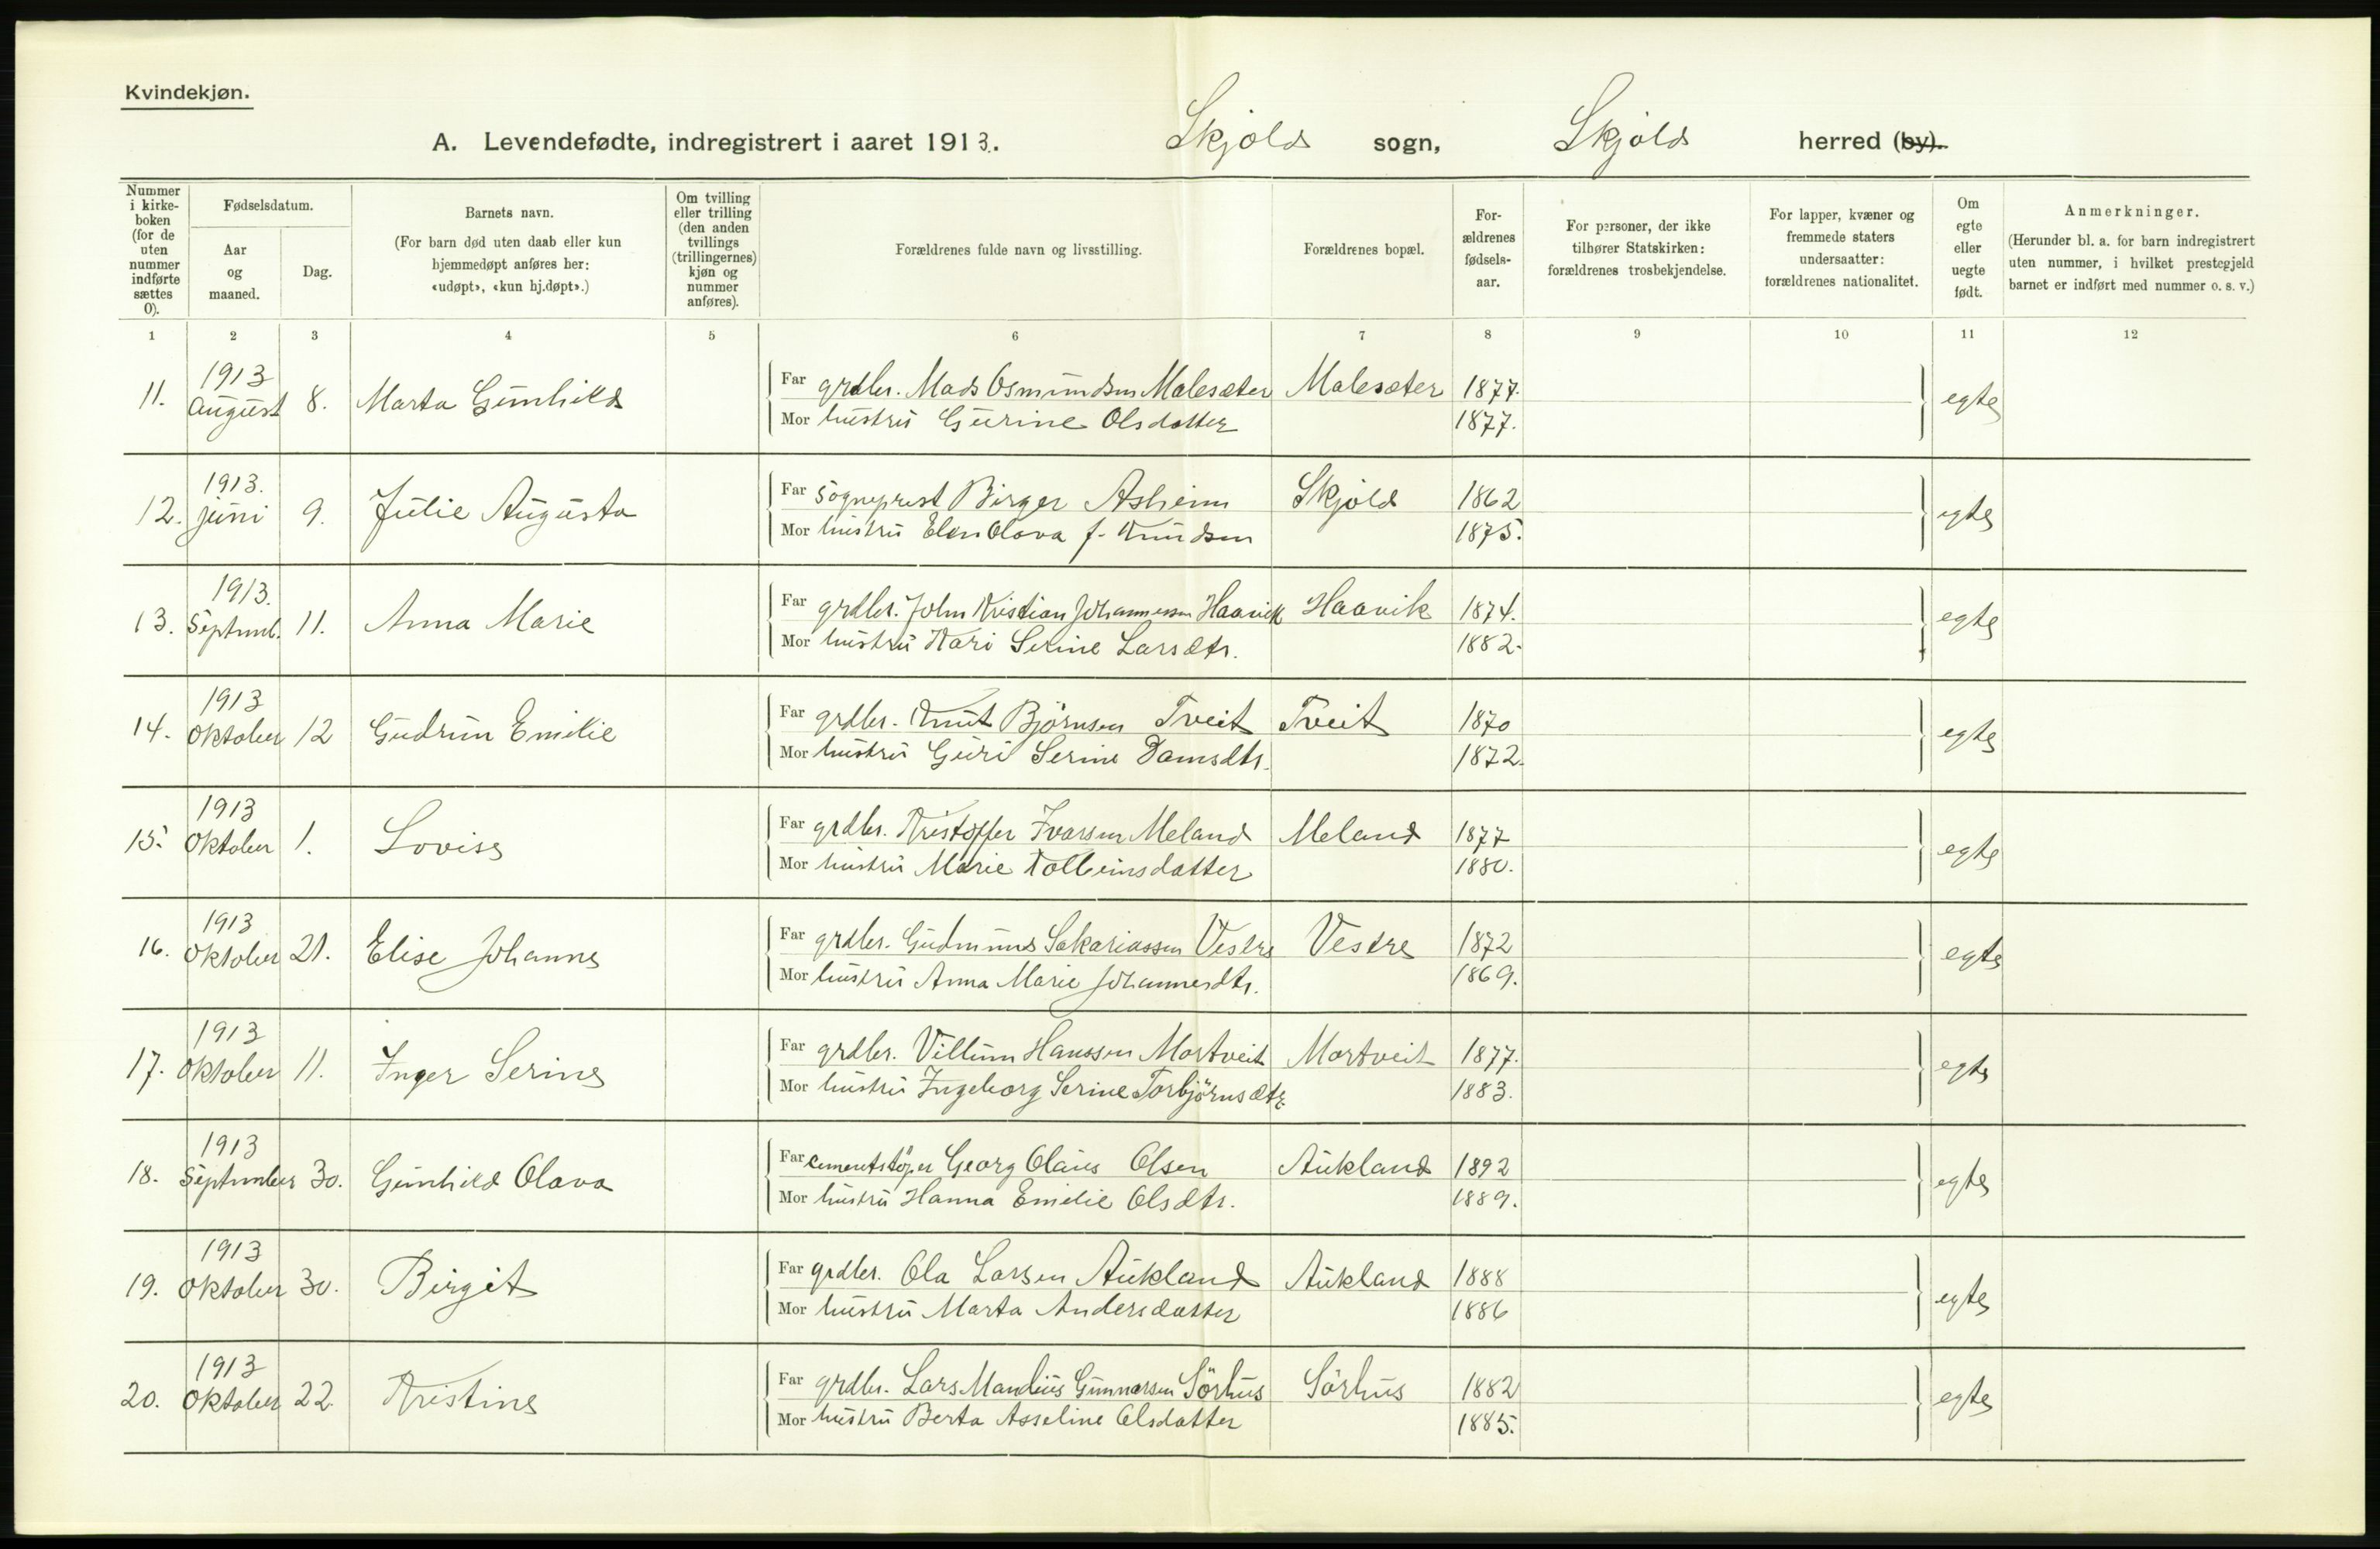 Kvindekjøn.
A. Levendefødte, indregistrert i aaret 1913. Skjold sogn, Skjold herred (by).
Nummer i kirkeboken (for de uten nummer indførte sættes 0).
Fødselsdatum.
Aar og maaned.
Dag.
Barnets navn.
(For barn død uten daab eller kun hjemmedøpt anføres her: «udøpt», «kun hj.døpt».)
Om tvilling eller trilling (den anden tvillings (trillingernes) kjøn og nummer anføres).
Forældrenes fulde navn og livsstilling.
Forældrenes bopæl.
Forældrenes fødselsaar.
For personer, der ikke tilhører Statskirken: forældrenes trosbekjendelse.
For lapper, kvæner og fremmede staters undersaatter: forældrenes nationalitet.
Om egte eller uegte født.
Anmerkninger.
(Herunder bl. a. for barn indregistrert uten nummer, i hvilket prestegjeld barnet er indført med nummer o. s. v.)
1 2 3 4 5 6 7 8 9 10 11 12
11. 1913 August 8. Marta Gunhild Far grdbr. Mads Osmundsen Malesæter Malesæter 1877. egte
Mor hustru Gurine Olsdatter 1877.
12. 1913. juni 9. Julie Augusta Far Sogneprest Birger Asheim Skjold 1862 egte
Mor hustru Elen Olava f. Knudsen 1875.
13. 1913. Septemb. 11. Anna Marie Far grdbr. John Kristian Johannessen Haavik Haavik 1874. egte
Mor hustru Kari Serine Larsdtr. 1882.
14. 1913 Oktober 12 Gudrun Emilie Far grdbr. Knut Björnsen Tveit Tveit 1870 egte
Mor hustru Guri Serine 1872.
15. 1913 Oktober 1. Lovise Far grdbr. Kristoffer Ivarsen Meland Meland 1877 egte
Mor hustru Marie Tolleinsdatter 1880.
16. 1913 Oktober 21. Elise Johanne Far grdbr. Gudmund Sakariassen Vestre Vestre 1872 egte
Mor hustru Anna Marie Johannesdtr. 1869.
17. 1913 Oktober 11. Inger Serine Far grdbr. Villum Hanssen Mortveit Mortveit 1877. egte
Mor hustru Ingeborg Serine Torbjörnsdtr. 1883.
18. 1913 September 30. Gunhild Olava Far cementstöper Georg Olaus Olsen Aukland 1892 egte
Mor hustru Hanna Emelie Olsdtr. 1889.
19. 1913 Oktober 30. Birgit Far grdbr. Ola Larsen Aukland Aukland 1888 egte
Mor hustru Marta Andersdatter 1886
20. 1913 Oktober 22. Kristine Far grdbr. Lars Mandius Gunnarsen Sörhus Sörhus 1882 egte
Mor hustru Berta Asseline Olsdatter 1885.